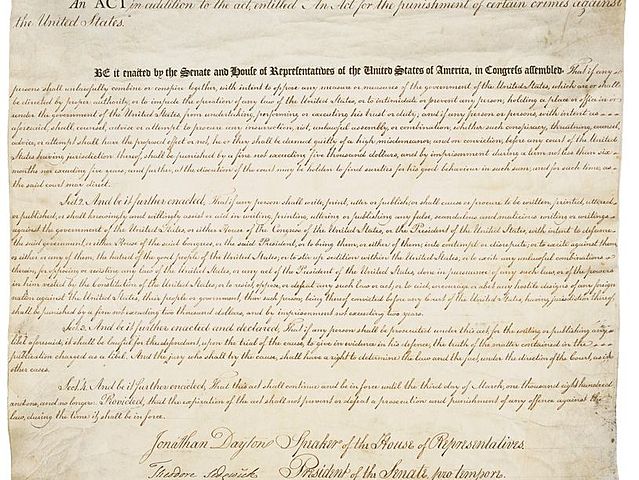 An ACT in addition to the act, entitled An Act for the punishment of certain crimes against
the United States."
BE it enacted by the Senate and House of Representatives of the United States of America, in Congress assembled. That if any
persons shall unlawfully combine or conspire together, with intent to oppose any measure or measures of the government of the United States, which are or shall
be directed by proper authority, or to impede the operation of any law of the United States, or to intimidate or prevent any person, holding a place or office in or
under the government of the United States, from undertaking, performing or executing his trust or duty; and if any person or persons, with intent as
aforesaid, shall counsel, advise or attempt to procure any insurrection, riot, unlawful assembly, or combination, whether such conspiracy, threatening, counsel,
advice, or attempt shall have the proposed effect or not, he or they shall be deemed guilty of a high misdemeanor, and on conviction, before any court of the United
States having jurisdiction thereof, shall be punished by a fine not exceeding five thousand dollars, and by imprisonment during a term not less than six
months nor exceeding five years; and further, at the discretion of the court may be holden to find sureties for his good behaviour in such sum, and for such time, as
the said court may direct.
Sect. 2. And be it further enacted, That if any person shall write, print, utter or publish, or shall cause or procure to be written, printed, uttered
or published, or shall knowingly and willingly assist or aid in writing, printing, uttering or publishing any false, scandalous and malicious writing or writings
against the government of the United States, or either House of the Congress of the United States, or the President of the United States, with intent to defame
the said government, or either House of the said Congress, or the said President, or to bring them, or either of them, into contempt or disrepute; or to excite against them,
or either or any of them, the hatred of the good people of the United States, or to stir up sedition within the United States, or to excite any unlawful combinations
therein, for opposing or resisting any law of the United States, or any act of the President of the United States, done in pursuance of any such law, or of the powers
in him vested by the Constitution of the United States, or to resist, oppose, or defeat any such law or act, or to aid, encourage or abet any hostile designs of any foreign
nation against the United States, their people or government, then such person, being thereof convicted before any Court of the United States, having jurisdiction thereof,
shall be punished by a fine not exceeding two thousand dollars, and by imprisonment not exceeding two years.
Sect. 3. And be it further enacted and declared, That if any person shall be prosecuted under this act for the writing or publishing any
libel aforesaid, it shall be lawful for the defendant, upon the trial of the cause, to give in evidence in his defence, the truth of the matter contained in the
publication charged as a libel. And the jury who shall try the cause, shall have a right to determine the law and the fact, under the direction of the Court, as in
other cases.
Sect. 4. And be it further enacted, That this act shall continue and be in force until the third day of March, one thousand eight hundred
and one, and no longer: Provided, that the expiration of the act shall not prevent or defeat a prosecution and punishment of any offence against the
law, during the time it shall be in force.
Jonathan Dayton Speaker of the House of Representatives.
Theodore Sedgwick President of the Senate, pro tempore.